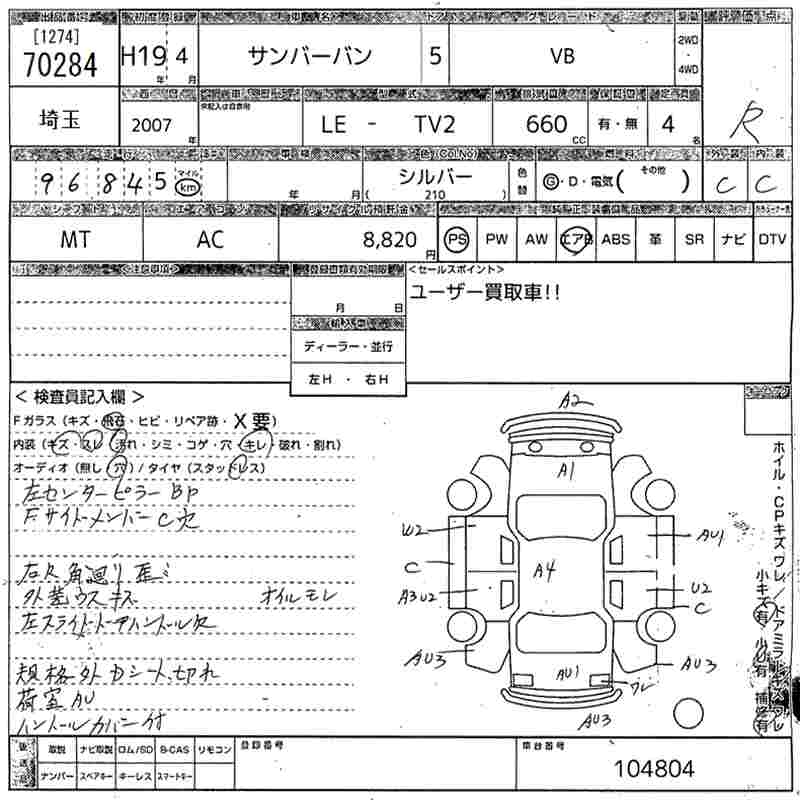 出品番号 初度登録 車名 ドア グレード 駆動 評価点
[1274]
70284
H19 4 サンバーバン 5 VB 2WD・4WD
年 月
R
埼玉
2007 年 LE - TV2 660 CC 有・無 4 名
走行 車検 色(Col.No) 燃料 外装 内装
96845 マイル km 年 月 シルバー (210) 色替 G・D・電気(その他) C C
シフト エアコン リサイクル預託金
MT AC 8,820 円 PS PW AW エアB ABS 革 SR ナビ DTV
<注意事項> 登録書類有効期限 <セールスポイント>
月 日 ユーザー買取車!!
輸入車
ディーラー・並行
左H ・ 右H
<検査員記入欄>
Fガラス(キズ・飛石・ヒビ・リペア跡・X要)
内装(キズ・スレ・汚れ・シミ・コゲ・穴・キレ・破れ・割れ)
オーディオ(無し・穴)/タイヤ(スタッドレス)
左センターピラーBP
Fサイドメンバー C欠
外装ウスキズ オイルモレ
左スライドドアハンドル欠
規格外Dシート、切れ
荷室AU
ハンドルカバー付
A2
A1
U2 AU1
C A4
A3 U2 U2
C
AU3 AU3
AU1 ワレ
AU3
ホイル・CPキズ ワレ/ドアミラーキズ ワレ
小キズ有 小U有 補修有
後送品 取説 ナビ取説 ロム/SD B-CAS リモコン 登録番号 車台番号
ナンバー スペアキー キーレス スマートキー 104804